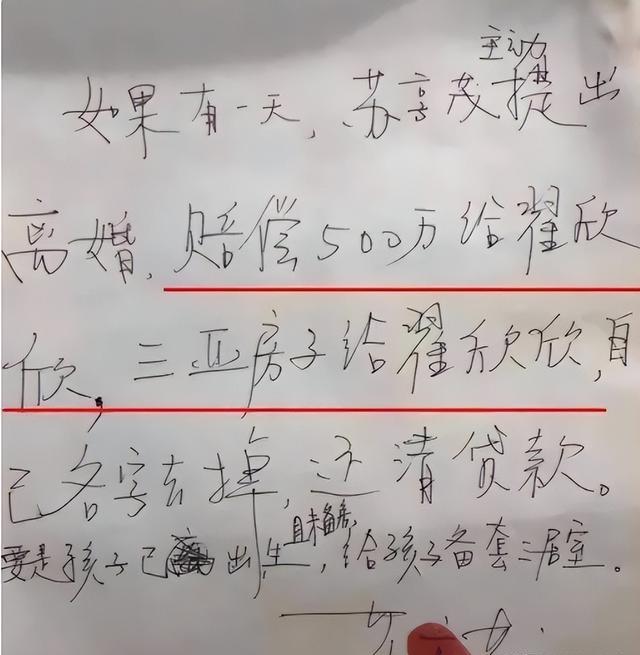 主动
如果有一天,苏享茂提出
离婚,赔偿500万给翟欣
欣,三亚房子给翟欣欣,自
己名字去掉,还清贷款。
且未备房,
要是孩子已出生,给孩子备套三居室。